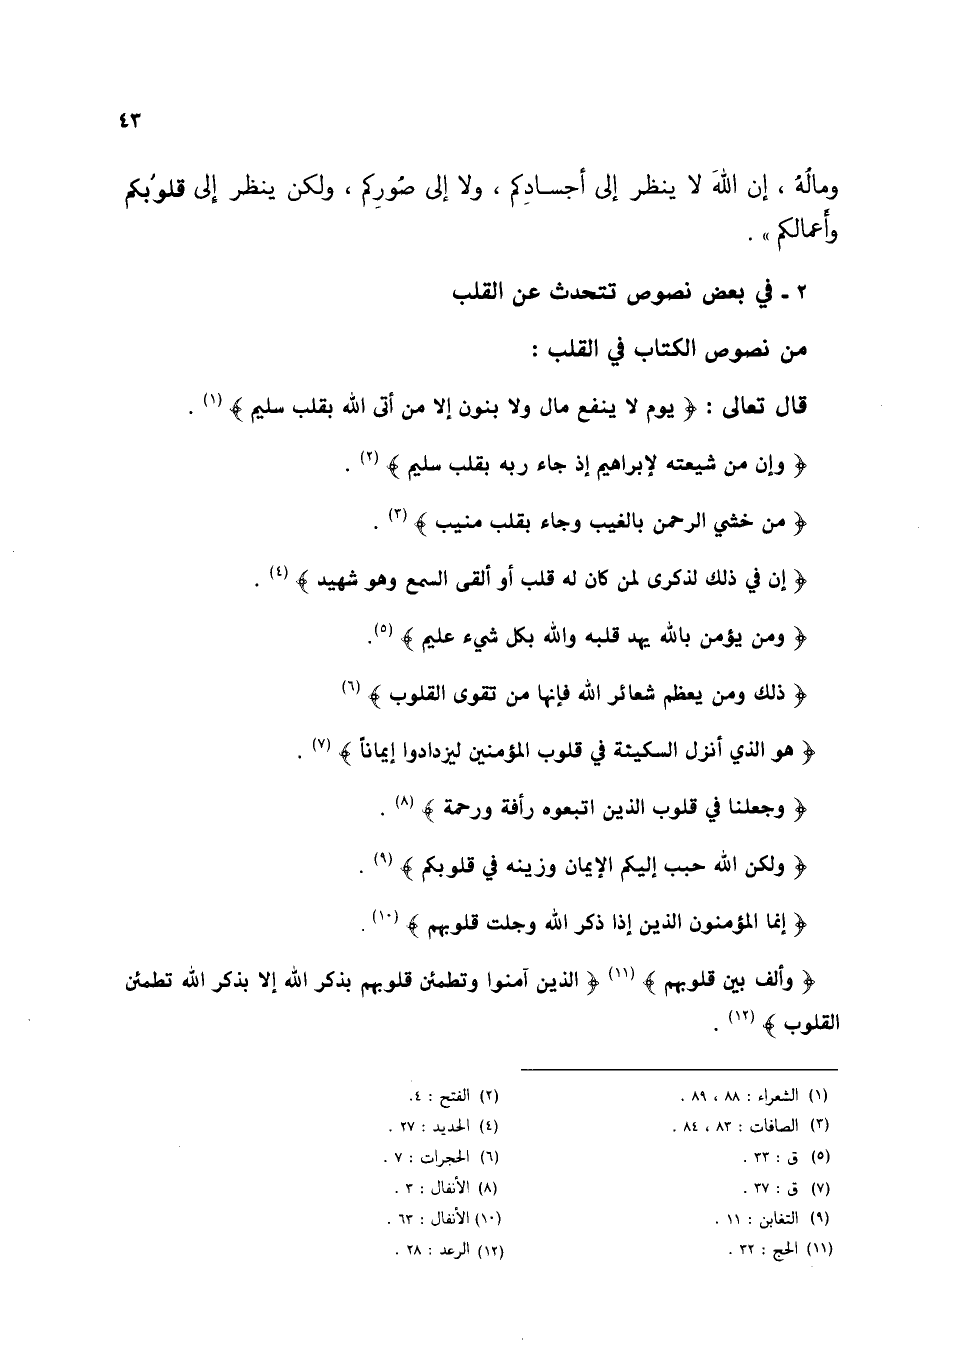 ٤٣
ومالُهُ ، إن اللهَ لا ينظر إلى أجسادِكم ، ولا إلى صُورِكم ، ولكن ينظر إلى قلوبكم
وأعمالكم » .
٢ - في بعض نصوص تتحدث عن القلب
من نصوص الكتاب في القلب :
قال تعالى : ﴿ يوم لا ينفع مال ولا بنون إلا من أتى الله بقلب سليم ﴾ (١) .
﴿ وإن من شيعته لإبراهيم إذ جاء ربه بقلب سليم ﴾ (٢) .
﴿ من خشي الرحمن بالغيب وجاء بقلب منيب ﴾ (٣) .
﴿ إن في ذلك لذكرى لمن كان له قلب أو ألقى السمع وهو شهيد ﴾ (٤) .
﴿ ومن يؤمن بالله يهد قلبه والله بكل شيء عليم ﴾ (٥).
﴿ ذلك ومن يعظم شعائر الله فإنها من تقوى القلوب ﴾ (٦)
﴿ هو الذي أنزل السكينة في قلوب المؤمنين ليزدادوا إيماناً ﴾ (٧) .
﴿ وجعلنا في قلوب الذين اتبعوه رأفة ورحمة ﴾ (٨) .
﴿ ولكن الله حبب إليكم الإيمان وزينه في قلوبكم ﴾ (٩) .
﴿ إنما المؤمنون الذين إذا ذكر الله وجلت قلوبهم ﴾ (١٠) .
﴿ وألف بين قلوبهم ﴾ (١١) ﴿ الذين آمنوا وتطمئن قلوبهم بذكر الله إلا بذكر الله تطمئن
القلوب ﴾ (١٢) .
(١) الشعراء : ٨٨ ، ٨٩ . (٢) الفتح : ٤.
(٣) الصافات : ٨٣ ، ٨٤ . (٤) الحديد : ٢٧ .
(٥) ق : ٣٣ . (٦) الحجرات : ٧ .
(٧) ق : ٣٧ . (٨) الأنفال : ٢ .
(٩) التغابن : ١١ . (١٠) الأنفال : ٦٣ .
(١١) الحج : ٣٢ . (١٢) الرعد : ٢٨ .